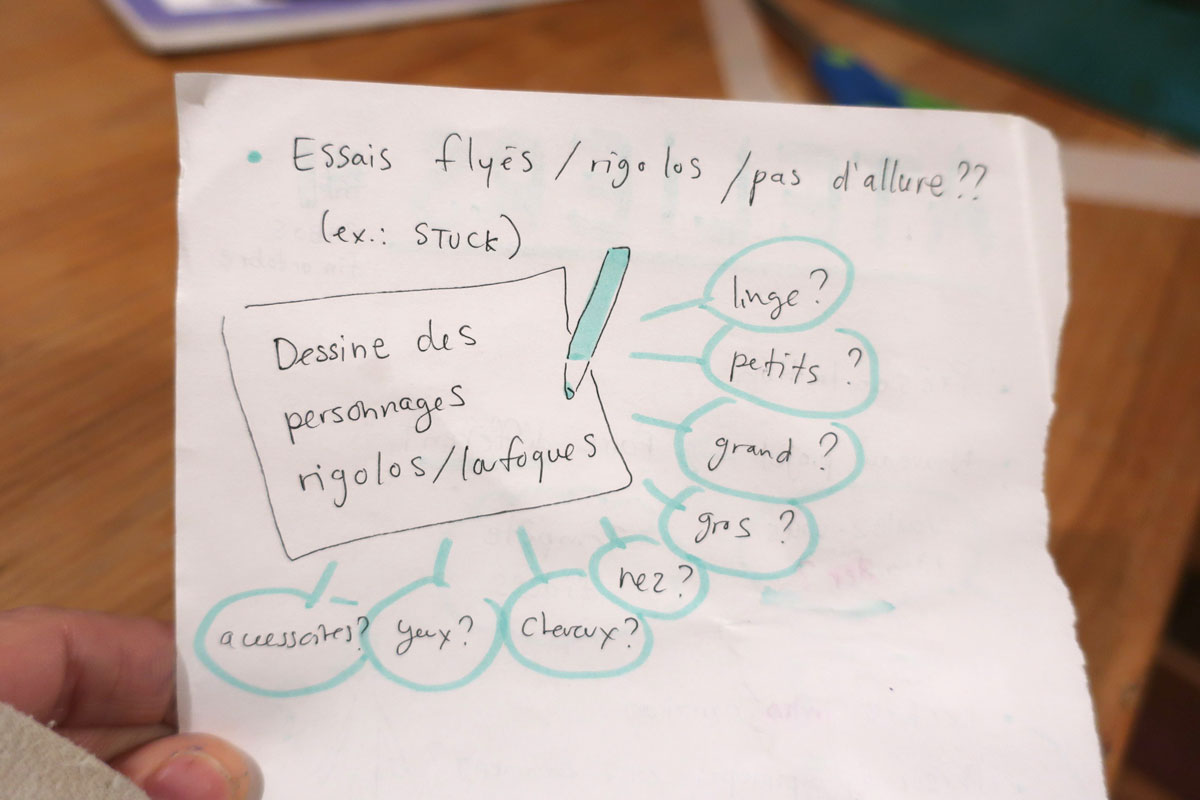 • Essais flyés / rigolos / pas d'allure ??
(ex.: STUCK)
Dessine des
personnages
rigolos / loufoques
linge ?
petits ?
grand ?
gros ?
nez ?
cheveux ?
yeux ?
accessoires ?